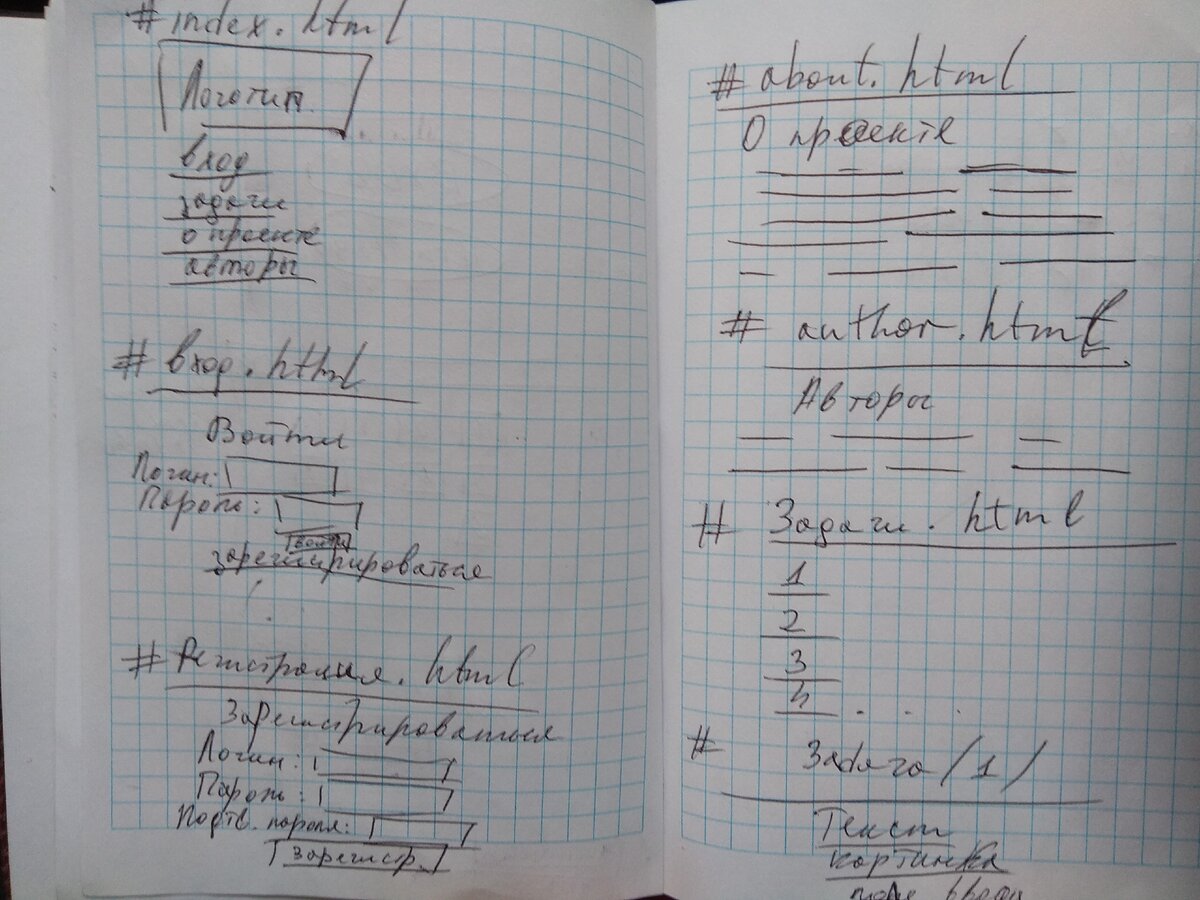 # index.html
Логотип.
вход
задачи
о проекте
авторы
# вход.html
Войти
Логин:
Пароль:
Войти
зарегистрироваться
# Регистрация.html
Зарегистрироваться
Логин:
Пароль:
Подтв. пароля:
зарегистр.
# about.html
О проекте
# author.html
Авторы
# Задачи.html
1
2
3
4 . . . .
# Задача /1/
Текст
картинка
поле ввода